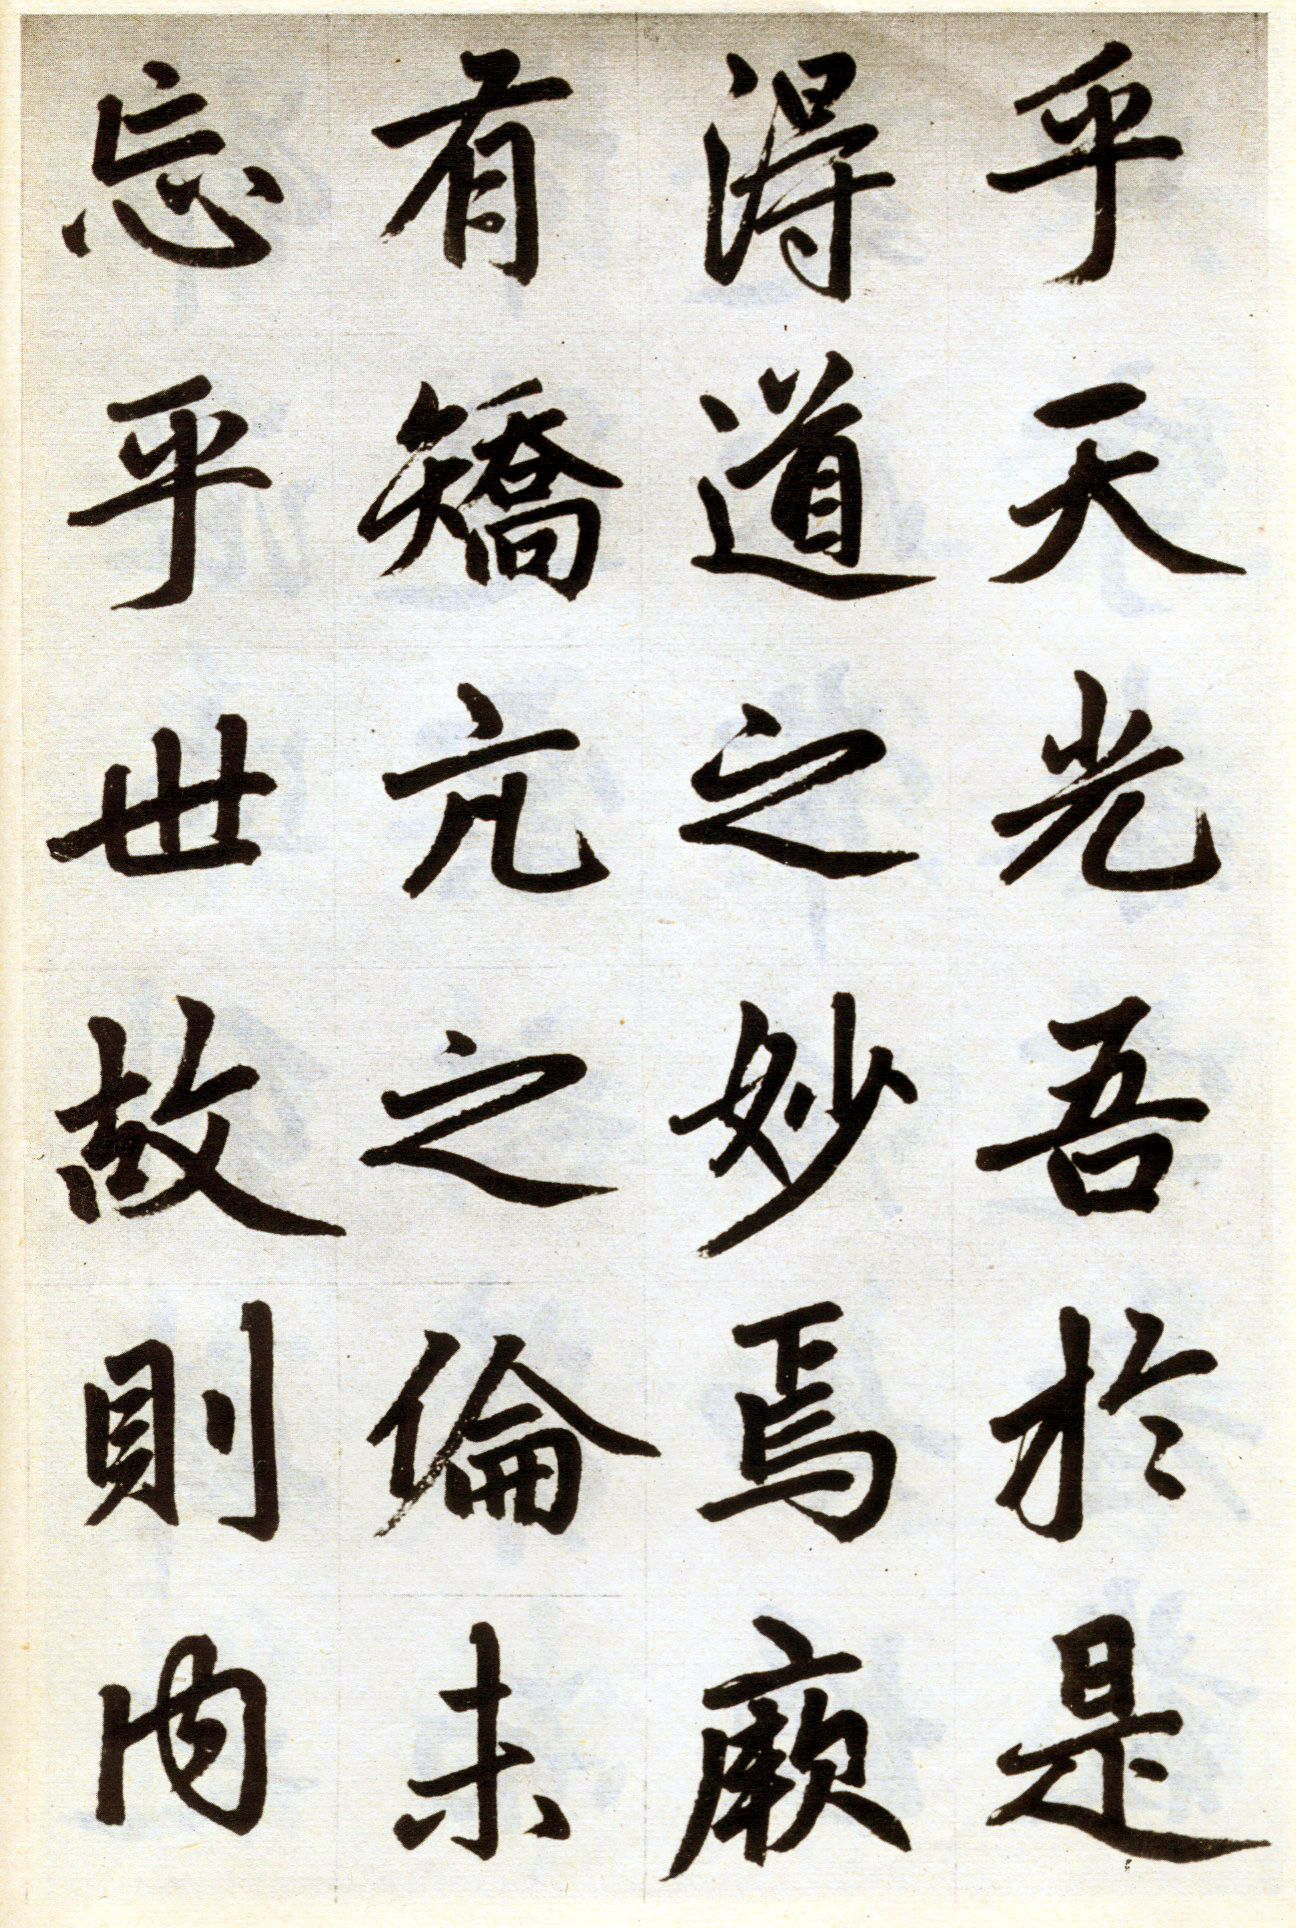 乎天光吾於是
得道之妙焉厥
有矯亢之倫未
忘乎世故則內